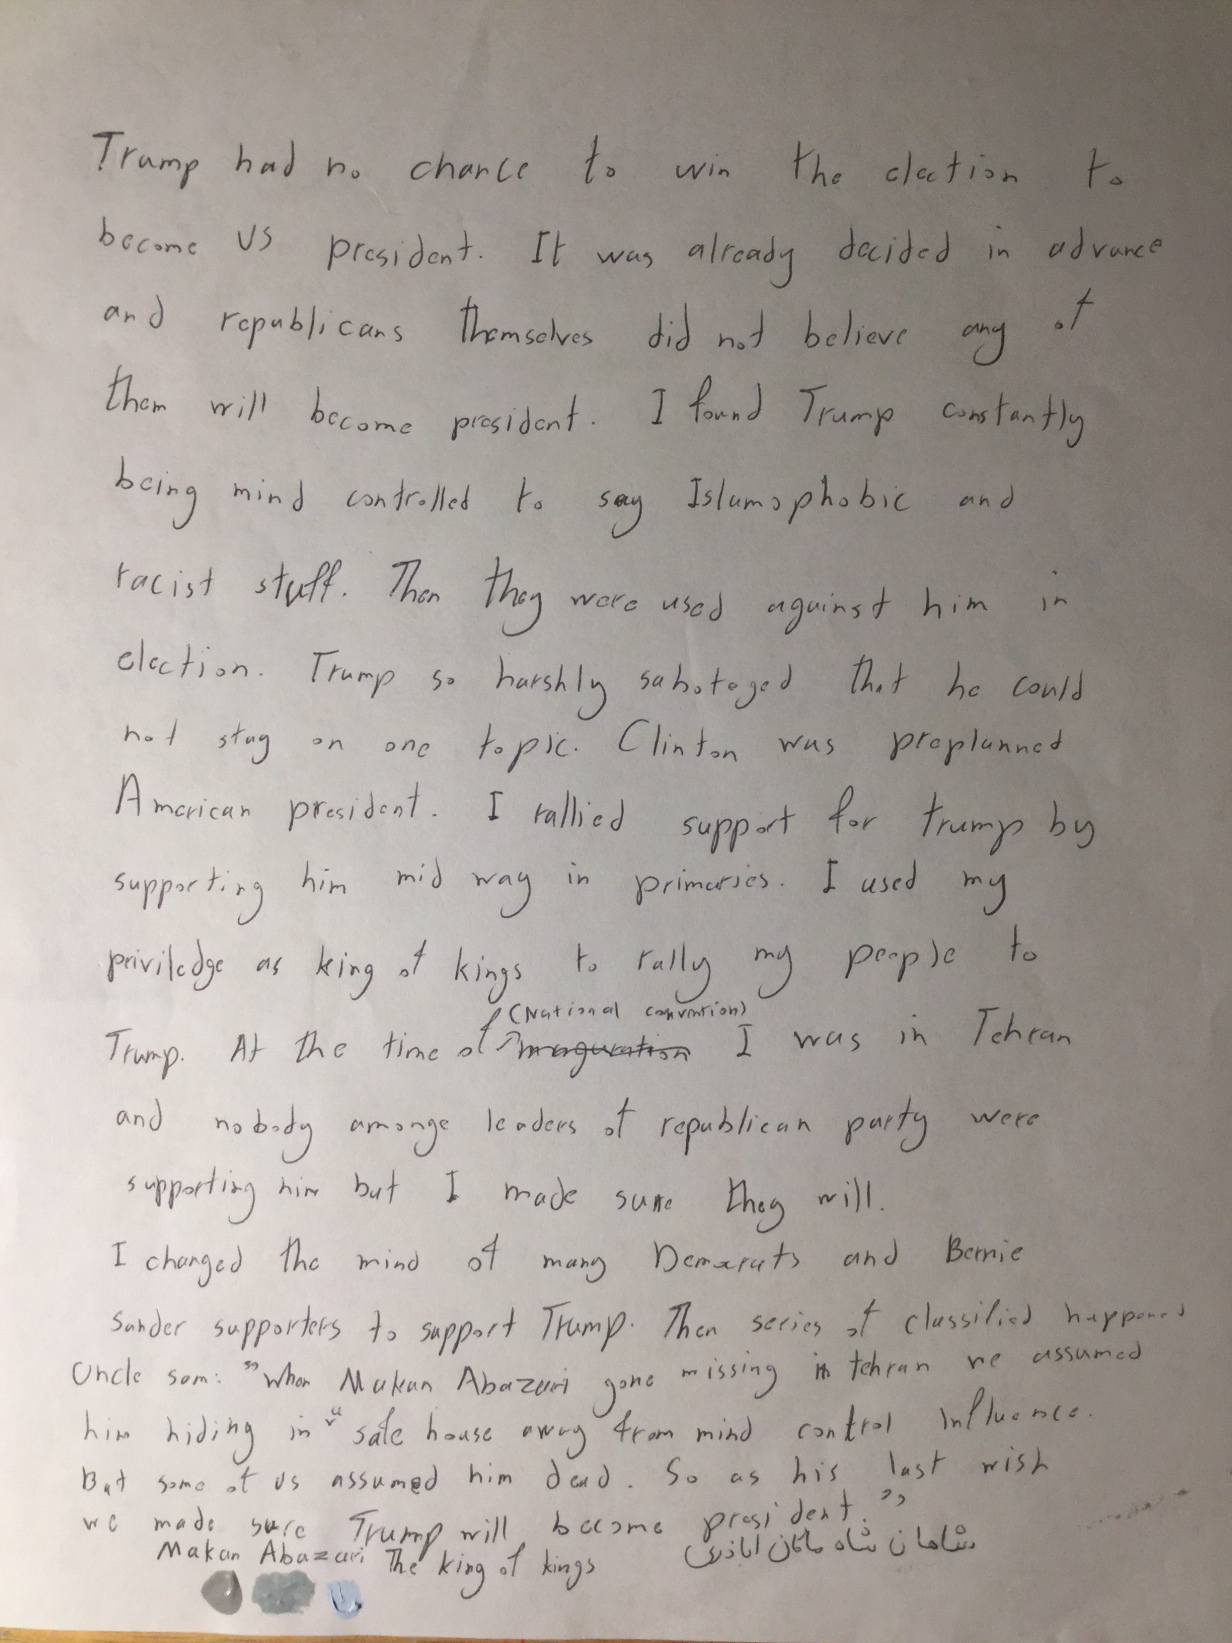 Trump had no chance to win the election to
become US president. It was already decided in advance
and republicans themselves did not believe any of
them will become president. I found Trump constantly
being mind controlled to say Islamophobic and
racist stuff. Then they were used against him in
election. Trump so harshly sabotaged that he could
not stay on one topic. Clinton was preplanned
American president. I rallied support for trump by
supporting him mid way in primaries. I used my
priviledge as king of kings to rally my people to
(National convention)
Trump. At the time of inaguration I was in Tehran
and nobody amonge leaders of republican party were
supporting him but I made sure they will.
I changed the mind of many Democrats and Bernie
sander supporters to support Trump. Then series of classified happened
Uncle sam: "when Makan Abazari gone missing in tehran we assumed
him hiding in a safe house away from mind control influence.
But some of us assumed him dead. So as his last wish
we made sure Trump will become president."
Makan Abazari The king of kings شاهان شاه ماکان اباذری